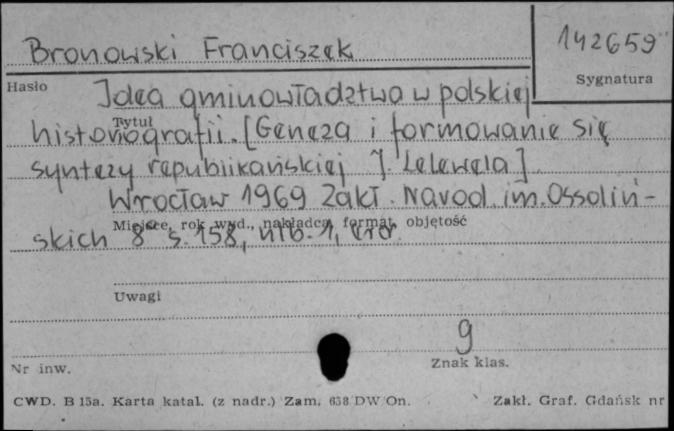 Bronowski Franciszek
142659
Hasło
Sygnatura
Idea gminowładztwa w polskiej
Tytuł
historiografii. [Geneza i formowanie się
syntezy republikańskiej J. Lelewela]
Wrocław 1969 Zakł. Narod. im. Ossoliń-
Miejsce, rok wyd., nakładca, format, objętość
skich 8° s. 158, nlb. 1,
Uwagi
9
Nr inw.
Znak klas.
CWD. B 15a. Karta katal. (z nadr.) Zam. 638 DW On.
Zakł. Graf. Gdańsk nr